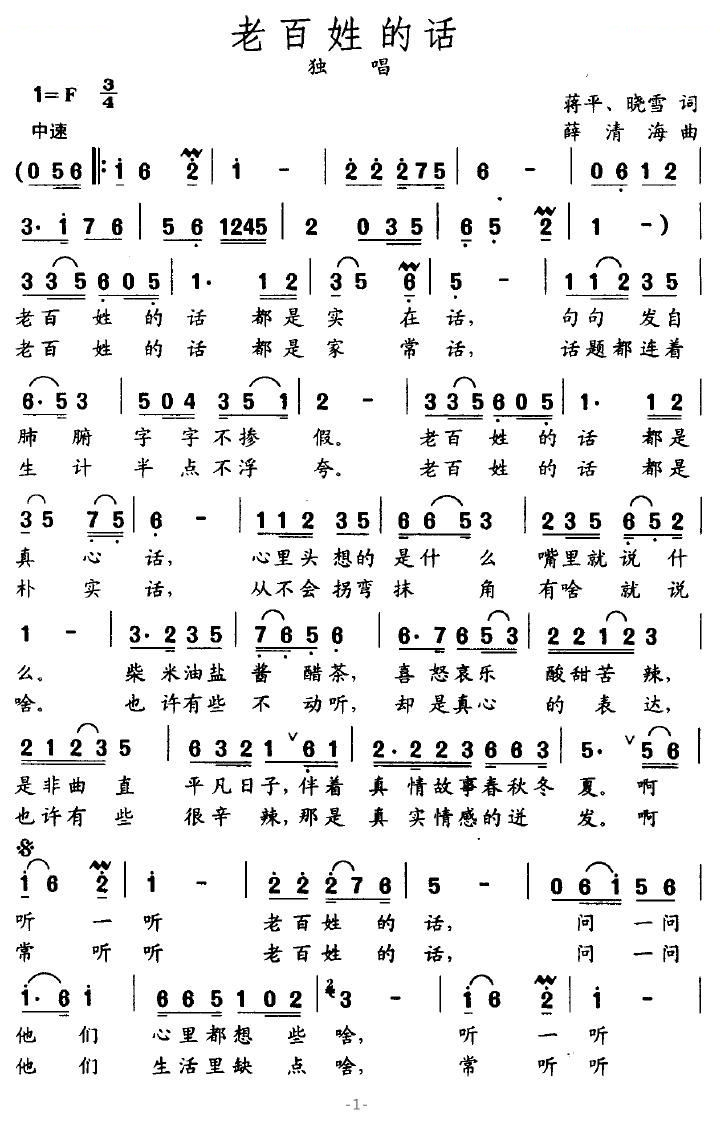 老百姓的话
独 唱
1=F 3/4
蒋平、晓雪 词
中速
薛清海 曲
(0 5 6 ‖: i 6 2 | i - | 2 2 2 7 5 | 6 - | 0 6 1 2
3· i 7 6 | 5 6 1245 | 2 0 3 5 | 6 5 2 | 1 - )
3 3 5 6 0 5 | 1· 1 2 | 3 5 6 | 5 - | 1 1 2 3 5
老百 姓 的 话 都是 实 在 话, 句句 发自
老百 姓 的 话 都是 家 常 话, 话题都连着
6· 5 3 | 5 0 4 3 5 1 | 2 - | 3 3 5 6 0 5 | 1· 1 2
肺 腑 字 字 不掺 假。 老百 姓 的 话 都是
生 计 半 点 不浮 夸。 老百 姓 的 话 都是
3 5 7 5 | 6 - | 1 1 2 3 5 | 6 6 5 3 | 2 3 5 6 5 2
真 心 话, 心里头 想的 是什 么 嘴里就 说 什
朴 实 话, 从不会 拐弯 抹 角 有啥 就 说
1 - | 3· 2 3 5 | 7 6 5 6 | 6· 7 6 5 3 | 2 2 1 2 3
么。 柴 米油盐 酱 醋茶, 喜 怒哀乐 酸甜苦 辣,
啥。 也 许有些 不 动听, 却 是真心 的 表 达,
2 1 2 3 5 | 6 3 2 1 ∨ 6 1 | 2· 2 2 3 6 6 3 | 5· ∨ 5 6
是非曲 直 平凡日子,伴着 真 情故事春秋冬 夏。啊
也许有 些 很辛 辣,那是 真 实情感的迸 发。啊
i 6 2 | i - | 2 2 2 7 6 | 5 - | 0 6 i 5 6
听 一 听 老百姓 的 话, 问 一问
常 听 听 老百姓 的 话, 问 一问
i· 6 i | 6 6 5 1 0 2 | 2 3 - | i 6 2 | i -
他 们 心里都想 些 啥, 听 一 听
他 们 生活里缺 点 啥, 常 听 听
-1-